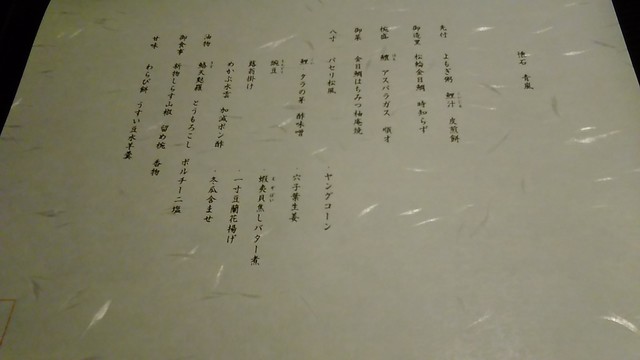 懐石 青嵐
先付 よもぎ粥 鯉汁 皮煎餅
御造里 松輪金目鯛 時知らず
椀盛 鱧 アスパラガス 順才
御菜 金目鯛はちみつ柚庵焼
八寸 パセリ松風
・ヤングコーン
鯉 タラの芽 酢味噌
・穴子葉生姜
豌豆
・蝦夷貝焦しバター煮
駱翁掛け
・一寸豆蘭花揚げ
めかぶ水雲 加減ポン酢
・冬瓜含ませ
油物 天麩羅 とうもろこし ポルチーニ塩
御食事 新物しらす山椒 留め椀 香物
甘味 わらび餅 うすい豆水羊羹